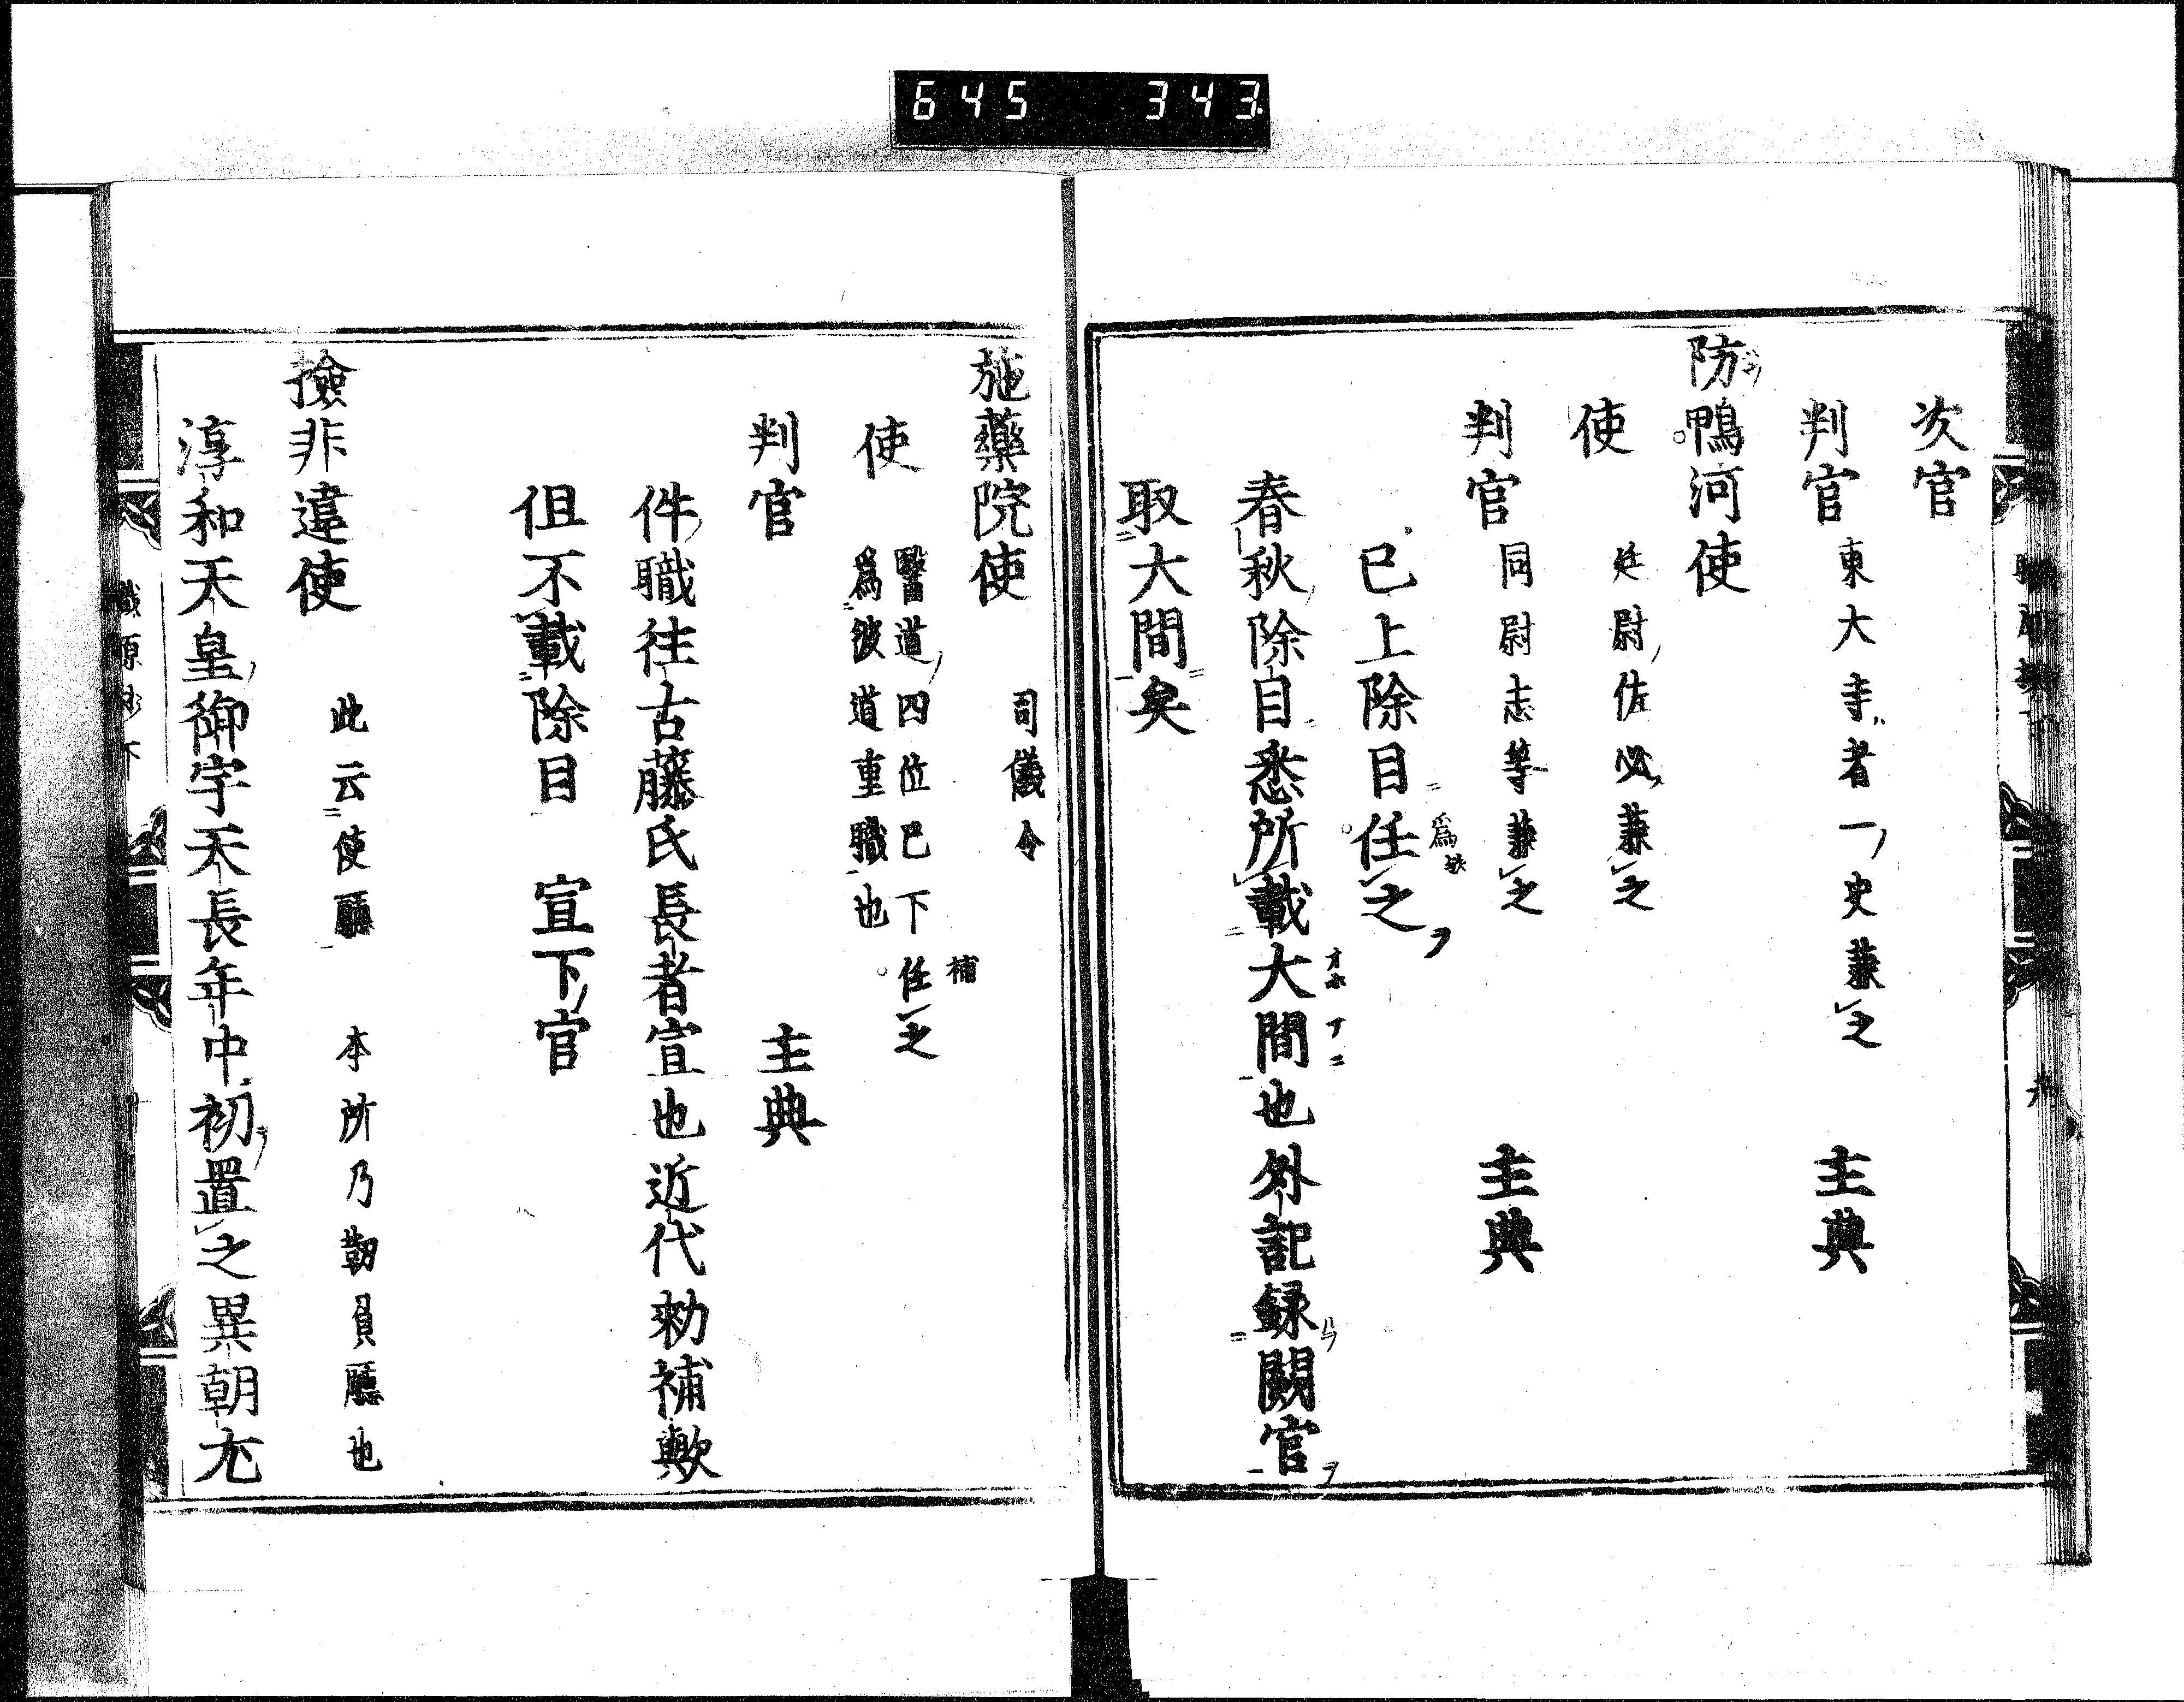 645 343
次官
判官 東大寺者一史兼之 主典
防鴨河使
使 廷尉佐必兼之
判官 同尉志等兼之 主典
已上除目任之
爲歟
春秋除目悉所載大間也外記録闕官
オホ
取大間矣
施藥院使 司儀令
使 醫道四位已下任之
補
爲彼道重職也
判官 主典
件職往古藤氏長者宣也近代勅補歟
但不載除目 宣下官
撿非違使 此云使廳 本所乃靱負廳也
淳和天皇御宇天長年中初置之異朝尤
職原抄下